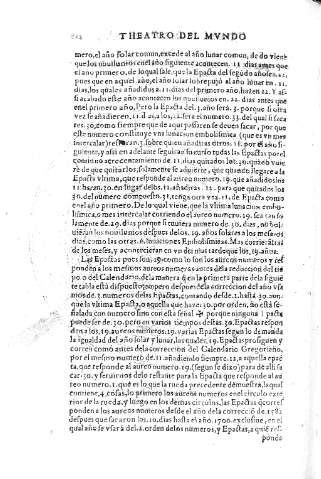 THEATRO DEL MVNDO
mero, el año solar comun, excede al año lunar comun, de do viene
que los nouilunios en el año siguiente acontecen. 11. dias antes que
el año primero, de lo qual sale, que la Epacta del segũdo año sea. 11.
pues que en aquel año. 22. el año lunar sobrepujó al año lunar. 11.
dias, los quales añadidos. 11. dias del primero año, hazen. 22. Y assi
acabado este año acontecen los nouilunios en. 22. dias antes que
en el primero año, Pero la Epacta del. 3. año sera. 3. porque si otra
vez se añadieren. 11. a las. 22. sera el numero. 33. del qual si saca
res. 30. como siempre que de aqui passaren se deuen sacar, por que
este numero constituye vna lunacion embolismica (que es vn mes
intercalar) restaran. 3. sobre que añadidas otros. 11. por el año si-
guiente, y assi en adelante seguiras hallando todas las Epactas por el
continuo acrecentamiento de. 11. dias quitados los. 30. quando vuie
re de que quitarlos, solamente se aduierte, que quando llegare a la
Epacta vltima, que responde al aureo numero. 19. que añadiendole
11. haran. 30. en lugar de los. 11. añadiras. 12. para que quitados los
30. del numero compuesto. 31. tengas otra vez. 11. de Epacta como
en el año primero. De lo qual viene, que la vltima lunacion embo-
lismica, o mes intercalar corriendo el aureo numero. 19. sea tan so
lamente de. 29. dias porque si tuuiera numero de. 30. dias, no bol-
uieran los nouilunios despues de los. 19. años solares a los mesmos
dias, como las otras. 6. lunaciones Embolismicas. Mas corrieran atras
de los meses, y acontecieran vn dia mas tarde que los. 19. años.
Las Epactas pues son. 19. como lo son los aureos numeros y res
ponden a los mesmos aureos numeros antes dela reduccion del año
y o del Calendario. dela manera q̃ en la primera parte dela siguiẽ
te tabla está dispuesto, empero despues dela correccion del año vsa
mos de. 30. numeros delas Epactas, començando desde. 1. hasta. 30. aun
que la vltima Epacta, o aquella que haze. 30. por orden, no está se-
ñalada con numero sino con esta señal ✠ porque ninguna Epacta
puede ser de. 30. pero en varios tiempos destas. 30. Epactas respon
den a los. 19. aureos numeros. 19. varias Epactas segun lo demanda
la igualdad del año solar y lunar, las quales. 19. Epactas prosiguen y
corren como antes dela correccion del Calendario Gregoriano,
por el mesmo numero de. 11. añadiendo siempre. 12. a aquella Epac
ta, que responde al aureo numero. 19. (segun se dixo) para de alli sa
car. 30. y seruirnos delo restante para la Epacta que responde al au
reo numero. 1. que es lo que la rueda precedente demuestra, la qual
contiene, 4. cosas, lo primero los aureos numeros en el circulo exte
rior de la rueda, y luego en los demas circulos, las Epactas q̃ corres
ponden a los aureos numeros desde el año dela correccion de 1582
despues que sacaron los. 10. dias hasta el año. 1700. exclusiue, en el
qual año se vsará del. 2. orden delos numeros, y Epactas, a quiẽ res-
ponde